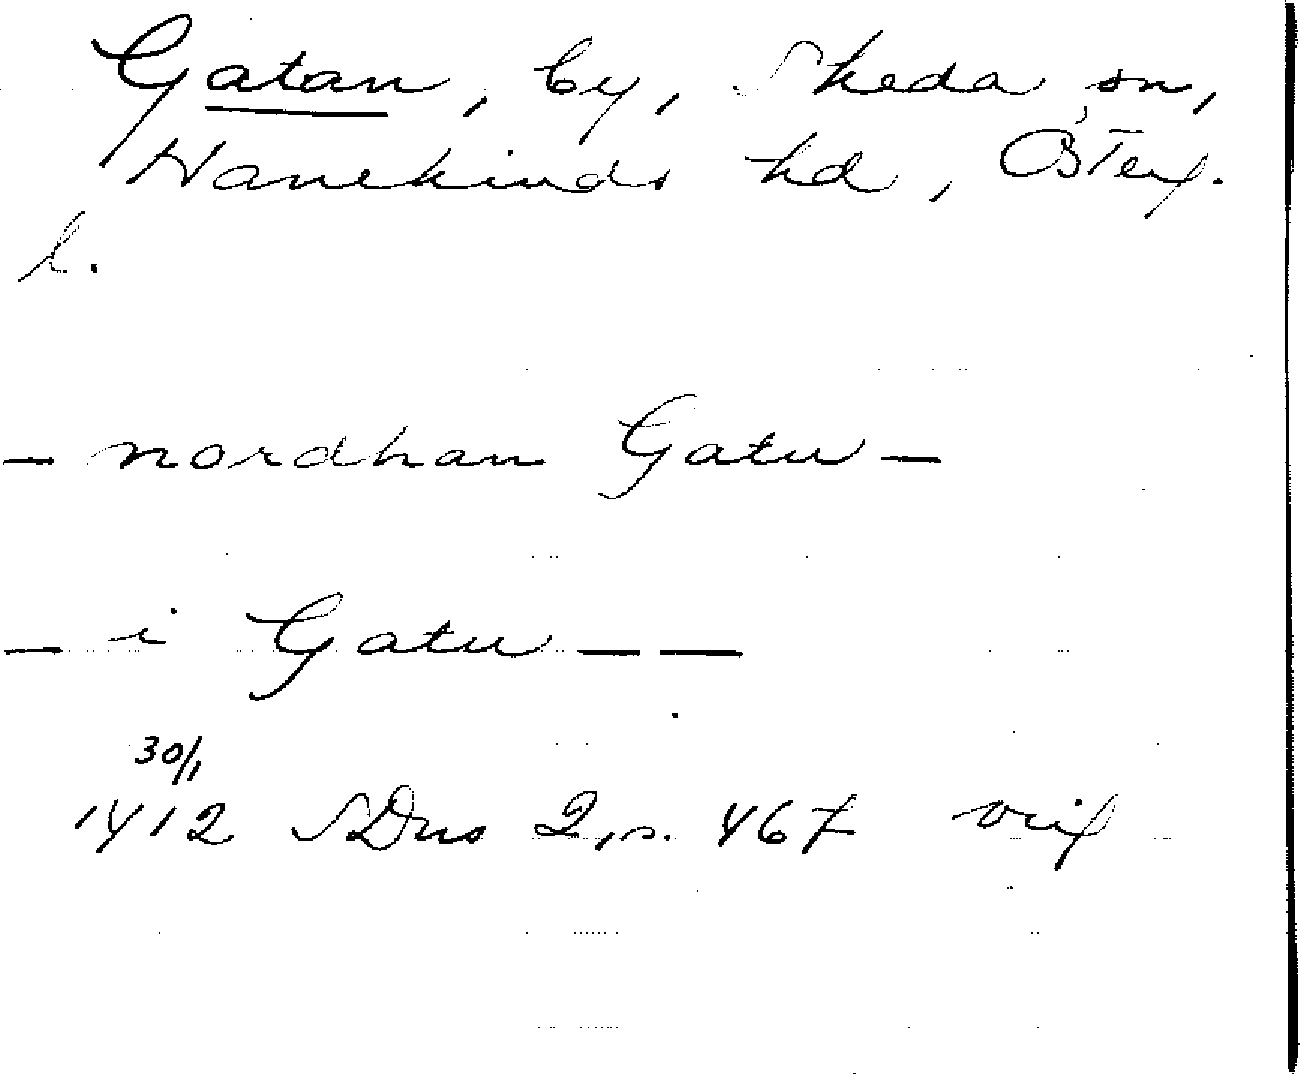 Gatan, by, Skeda sn,
Hanekinds hd, Östergl.
l.
- nordhan Gatu -
- i Gatu - -
30/1
1412 SDns 2, s. 467